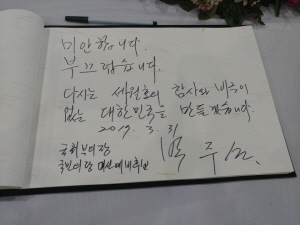 미안합니다.
부끄럽습니다.
다시는 세월호의 참사와 비극이
없는 대한민국을 만들겠습니다.
2017. 3. 31
국회부의장
국민의당 대선예비후보
박주선